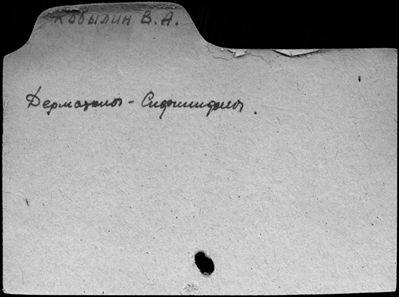 Кобылин В. А.
Дерматолог - Сифилидолог.